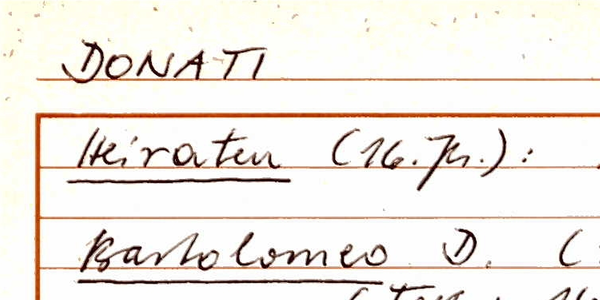 DONATI
Heiraten (16. Jh.):
Bartolomeo D. (